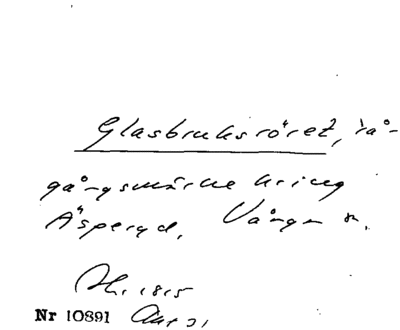 Glasbruksröret, rå-
gångsmärke kring
Äsperyd, Vånga sn.
1815
Nr 10891